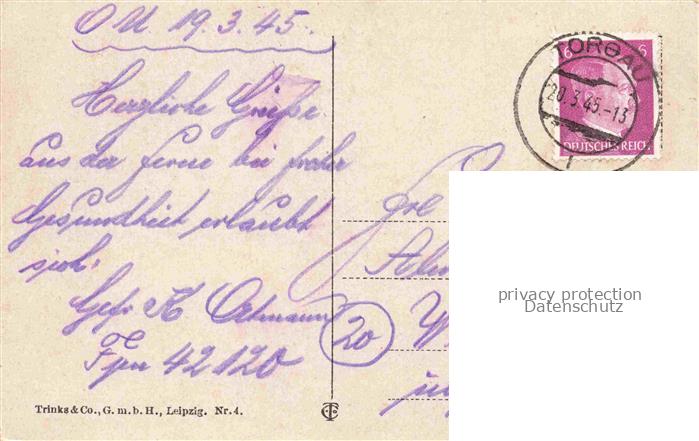 O U 19.3.45.
Herzliche Grüße
aus der Ferne bei froher
Gesundheit erlaubt
sich.
Gefr K Ortmann
Fpn 42120
TORGAU
20.3.45-13
6 6
DEUTSCHES REICH
20
privacy protection
Datenschutz
Trinks & Co., G. m. b. H., Leipzig. Nr. 4.